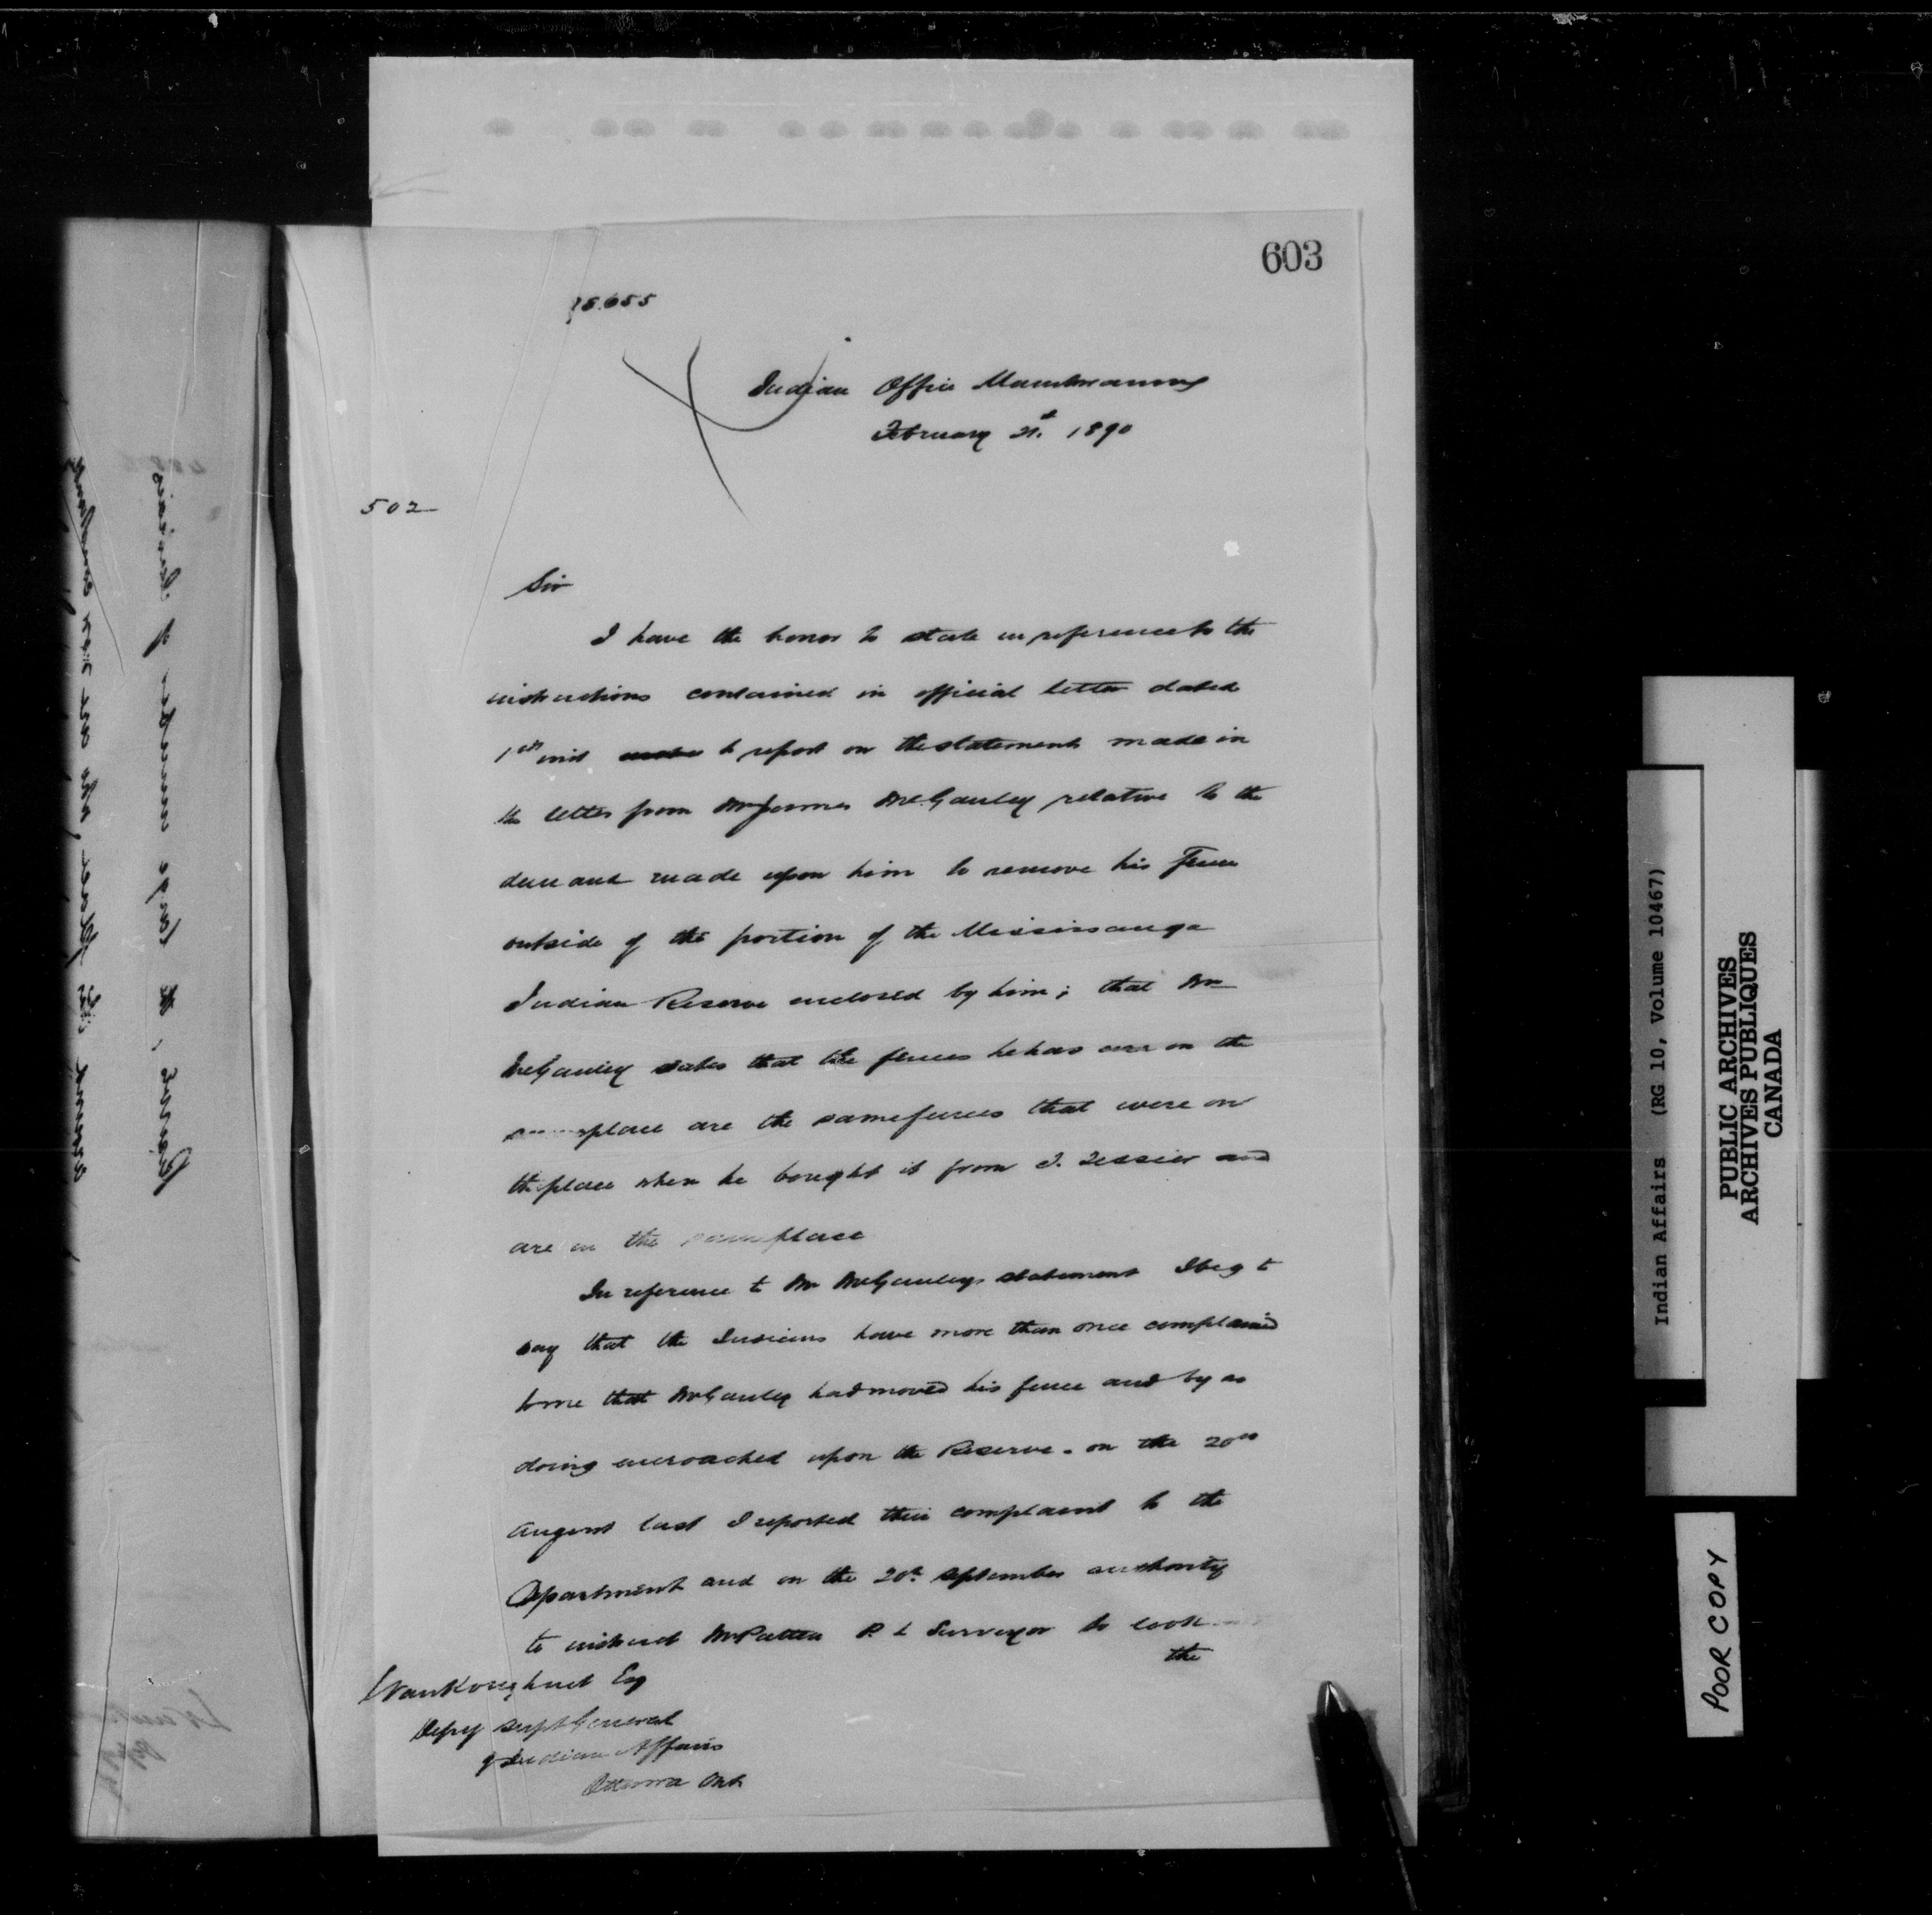 603
15.655
Indian Office Manitowaning
February 21st 1890
502
Sir
I have the honor to state in reference to the
instructions contained in official letter dated
1st inst to report on the statements made in
the letter from Mr James McGauley relative to the
demand made upon him to remove his Fence
outside of the portion of the Mississauga
Indian Reserve enclosed by him; that Mr
McGauley states that the fences he has on the
place are the same fences that were on
the place when he bought it from J. Tessier and
are in the same place
In reference to Mr McGauleys statement I beg to
say that the Indians have more than once complained
to me that McGauley had moved his fence and by so
doing encroached upon the Reserve. on the 20th
August last I reported their complaint to the
Department and on the 20th September authority
to instruct Mr Patten P. L Surveyor to look
the
L VanKoughnet Esq
Depy Supt General
of Indian Affairs
Ottawa Ont
Indian Affairs (RG 10, Volume 10467)
PUBLIC ARCHIVES
ARCHIVES PUBLIQUES
CANADA
POOR COPY